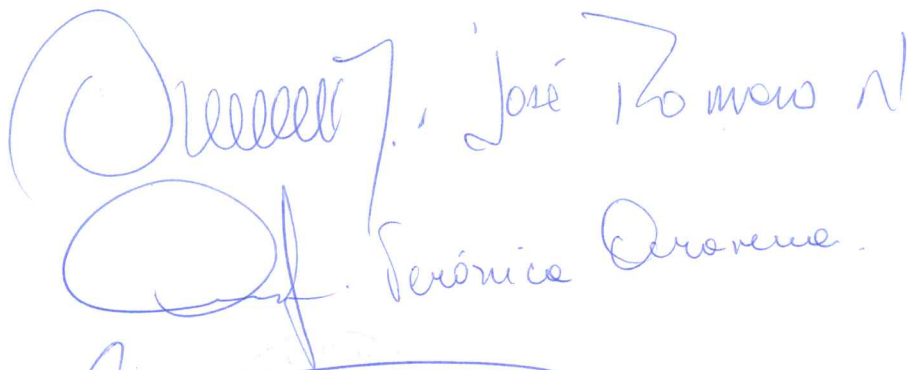 José Romero N
Verónica Aravena.